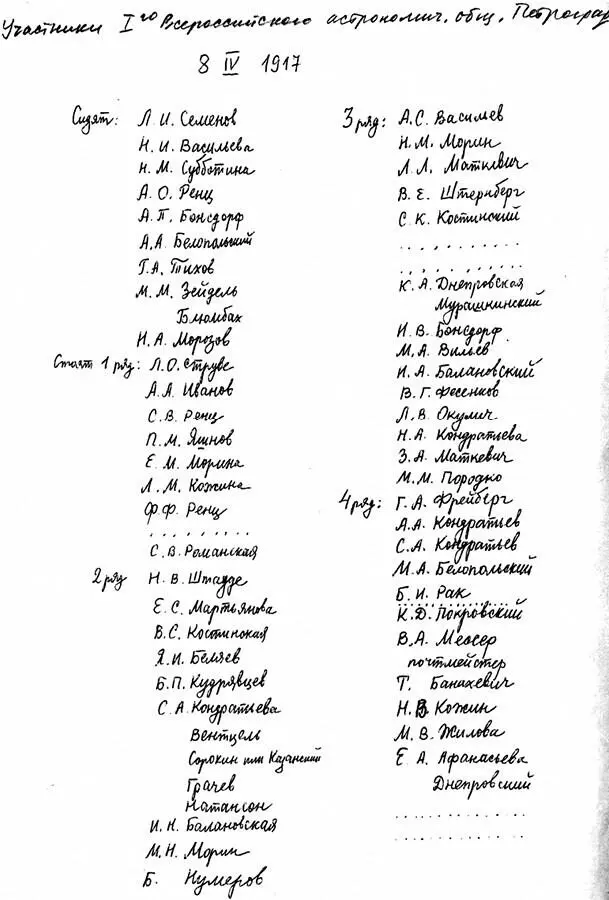 Участники Iго Всероссийского астрономич. общ. Петроград
8 IV 1917
Сидят: Л. И. Семенов
Н. И. Васильева
Н. М. Субботина
А. О. Ренц
А. П. Бонсдорф
А. А. Белопольский
Г. А. Тихов
М. М. Зейдель
Блюмбах
Н. А. Морозов
Стоят 1 ряд: Л. О. Струве
А. А. Иванов
С. В. Ренц
П. М. Яшнов
Е. М. Морина
Л. М. Кожина
Ф. Ф. Ренц
. . . . . . . .
С. В. Романская
2 ряд Н. В. Штадде
Е. С. Мартьянова
В. С. Костинская
Я. И. Беляев
Б. П. Кудрявцев
С. А. Кондратьева
Вентцель
Сорокин или Казанский
Грачев
Натансон
И. Н. Балановская
М. Н. Морин
Б. Нумеров
3 ряд: А. С. Васильев
Н. М. Морин
Л. Л. Маткевич
В. Е. Штернберг
С. К. Костинский
. . . . . . . .
. . . . . . . .
К. А. Днепровская
Мурашкинский
И. В. Бонсдорф
М. А. Вильев
И. А. Балановский
В. Г. Фесенков
Л. В. Окулич
Н. А. Кондратьева
З. А. Маткевич
М. М. Породко
4 ряд: Г. А. Фрейберг
А. А. Кондратьев
С. А. Кондратьев
М. А. Белопольский
Б. И. Рак
К. Д. Покровский
В. А. Мессер
почтмейстер
Т. Банахевич
Н. В. Кожин
М. В. Жилова
Е. А. Афанасьева
Днепровский
. . . . . . . .
. . . . . . . .